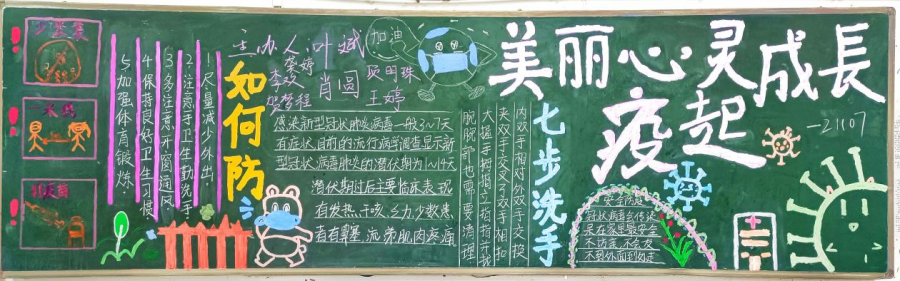 少聚集
一米线
主办人:叶斌
龚婷
李欢
贺梦程
肖圆
顾田珠
王婷
加油
美丽心灵成長
疫起
—21107
如何防
1.尽量减少外出.
2.注意手卫生勤洗手
3.多注意开窗通风.
4.保持良好卫生习惯.
5.加强体育锻炼.
感染新型冠状肺炎病毒一般3~7天
有症状,目前的流行病学调查显示新
型冠状病毒肺炎的潜伏期为1~14天
潜伏期过后主要临床表现
有发热,干咳,乏力,少数患
者有鼻塞,流涕肌肉疼痛
七步洗手
内双手相对外双手交搓
夹双手交叉弓双手相扣
大搓手拇指立指指尖我
腕腕部也需要清理
安全防范
冠状病毒会传染
呆在家里最安全
不访客,不会友
不到外面到处走